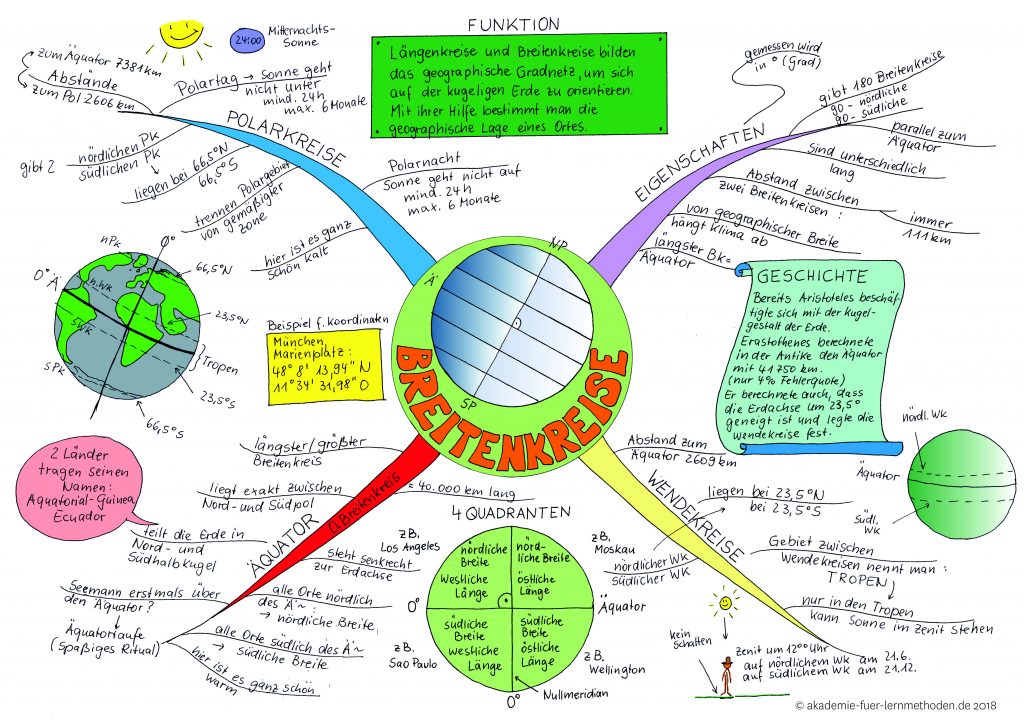 FUNKTION
Längenkreise und Breitenkreise bilden
das geographische Gradnetz, um sich
auf der kugeligen Erde zu orientieren.
Mit ihrer Hilfe bestimmt man die
geographische Lage eines Ortes.
24:00
Mitternachts-
Sonne
POLARKREISE
zum Äquator 7381 km
Abstände
zum Pol 2606 km
Polartag → Sonne geht
nicht unter
mind. 24h
max. 6 Monate
gibt 2
nördlichen PK
südlichen PK
liegen bei 66,5°N
66,5°S
trennen Polargebiet
von gemäßigter
Zone
hier ist es ganz
schön kalt
Polarnacht
Sonne geht nicht auf
mind. 24h
max. 6 Monate
EIGENSCHAFTEN
gemessen wird
in ° (Grad)
gibt 180 Breitenkreise
90 - nördliche
90 - südliche
parallel zum
Äquator
sind unterschiedlich
lang
Abstand zwischen
zwei Breitenkreisen:
immer
111 km
von geographischer Breite
hängt Klima ab
längster Bk=
Äquator
nPk
0°
66,5°N
0° Ä
n.Wk
23,5°N
sWk
Tropen
sPk
23,5°S
66,5°S
Beispiel f. Koordinaten
München,
Marienplatz:
48° 8' 13,94" N
11° 34' 31,98" O
NP
Ä
SP
BREITENKREISE
GESCHICHTE
Bereits Aristoteles beschäf-
tigte sich mit der Kugel-
gestalt der Erde.
Erastothenes berechnete
in der Antike den Äquator
mit 41750 km.
(nur 4% Fehlerquote)
Er berechnete auch, dass
die Erdachse um 23,5°
geneigt ist und legte die
Wendekreise fest.
nördl. Wk
Äquator
südl.
Wk
ÄQUATOR
0. Breitenkreis
längster/größter
Breitenkreis
= 40.000 km lang
liegt exakt zwischen
Nord- und Südpol
2 Länder
tragen seinen
Namen:
Äquatorial-Guinea
Ecuador
teilt die Erde in
Nord- und
Südhalbkugel
steht senkrecht
zur Erdachse
Seemann erstmals über
den Äquator?
Äquatortaufe
(spaßiges Ritual)
alle Orte nördlich
des Ä~:
→ nördliche Breite
alle Orte südlich des Ä~
→ südliche Breite
hier ist es ganz schön
warm
4 QUADRANTEN
z.B.
Los Angeles
z.B.
Moskau
nördliche
Breite
westliche
Länge
nörd-
liche Breite
östliche
Länge
0°
Äquator
südliche
Breite
westliche
Länge
südliche
Breite
östliche
Länge
z.B.
Sao Paulo
z.B.
Wellington
0°
Nullmeridian
WENDEKREISE
Abstand zum
Äquator 2609 km
liegen bei 23,5°N
bei 23,5°S
nördlicher WK
südlicher WK
Gebiet zwischen
Wendekreisen nennt man:
TROPEN
nur in den Tropen
kann Sonne im Zenit stehen
kein
Schatten
Zenit um 12⁰⁰ Uhr
auf nördlichem WK am 21.6.
auf südlichem WK am 21.12.
© akademie-fuer-lernmethoden.de 2018